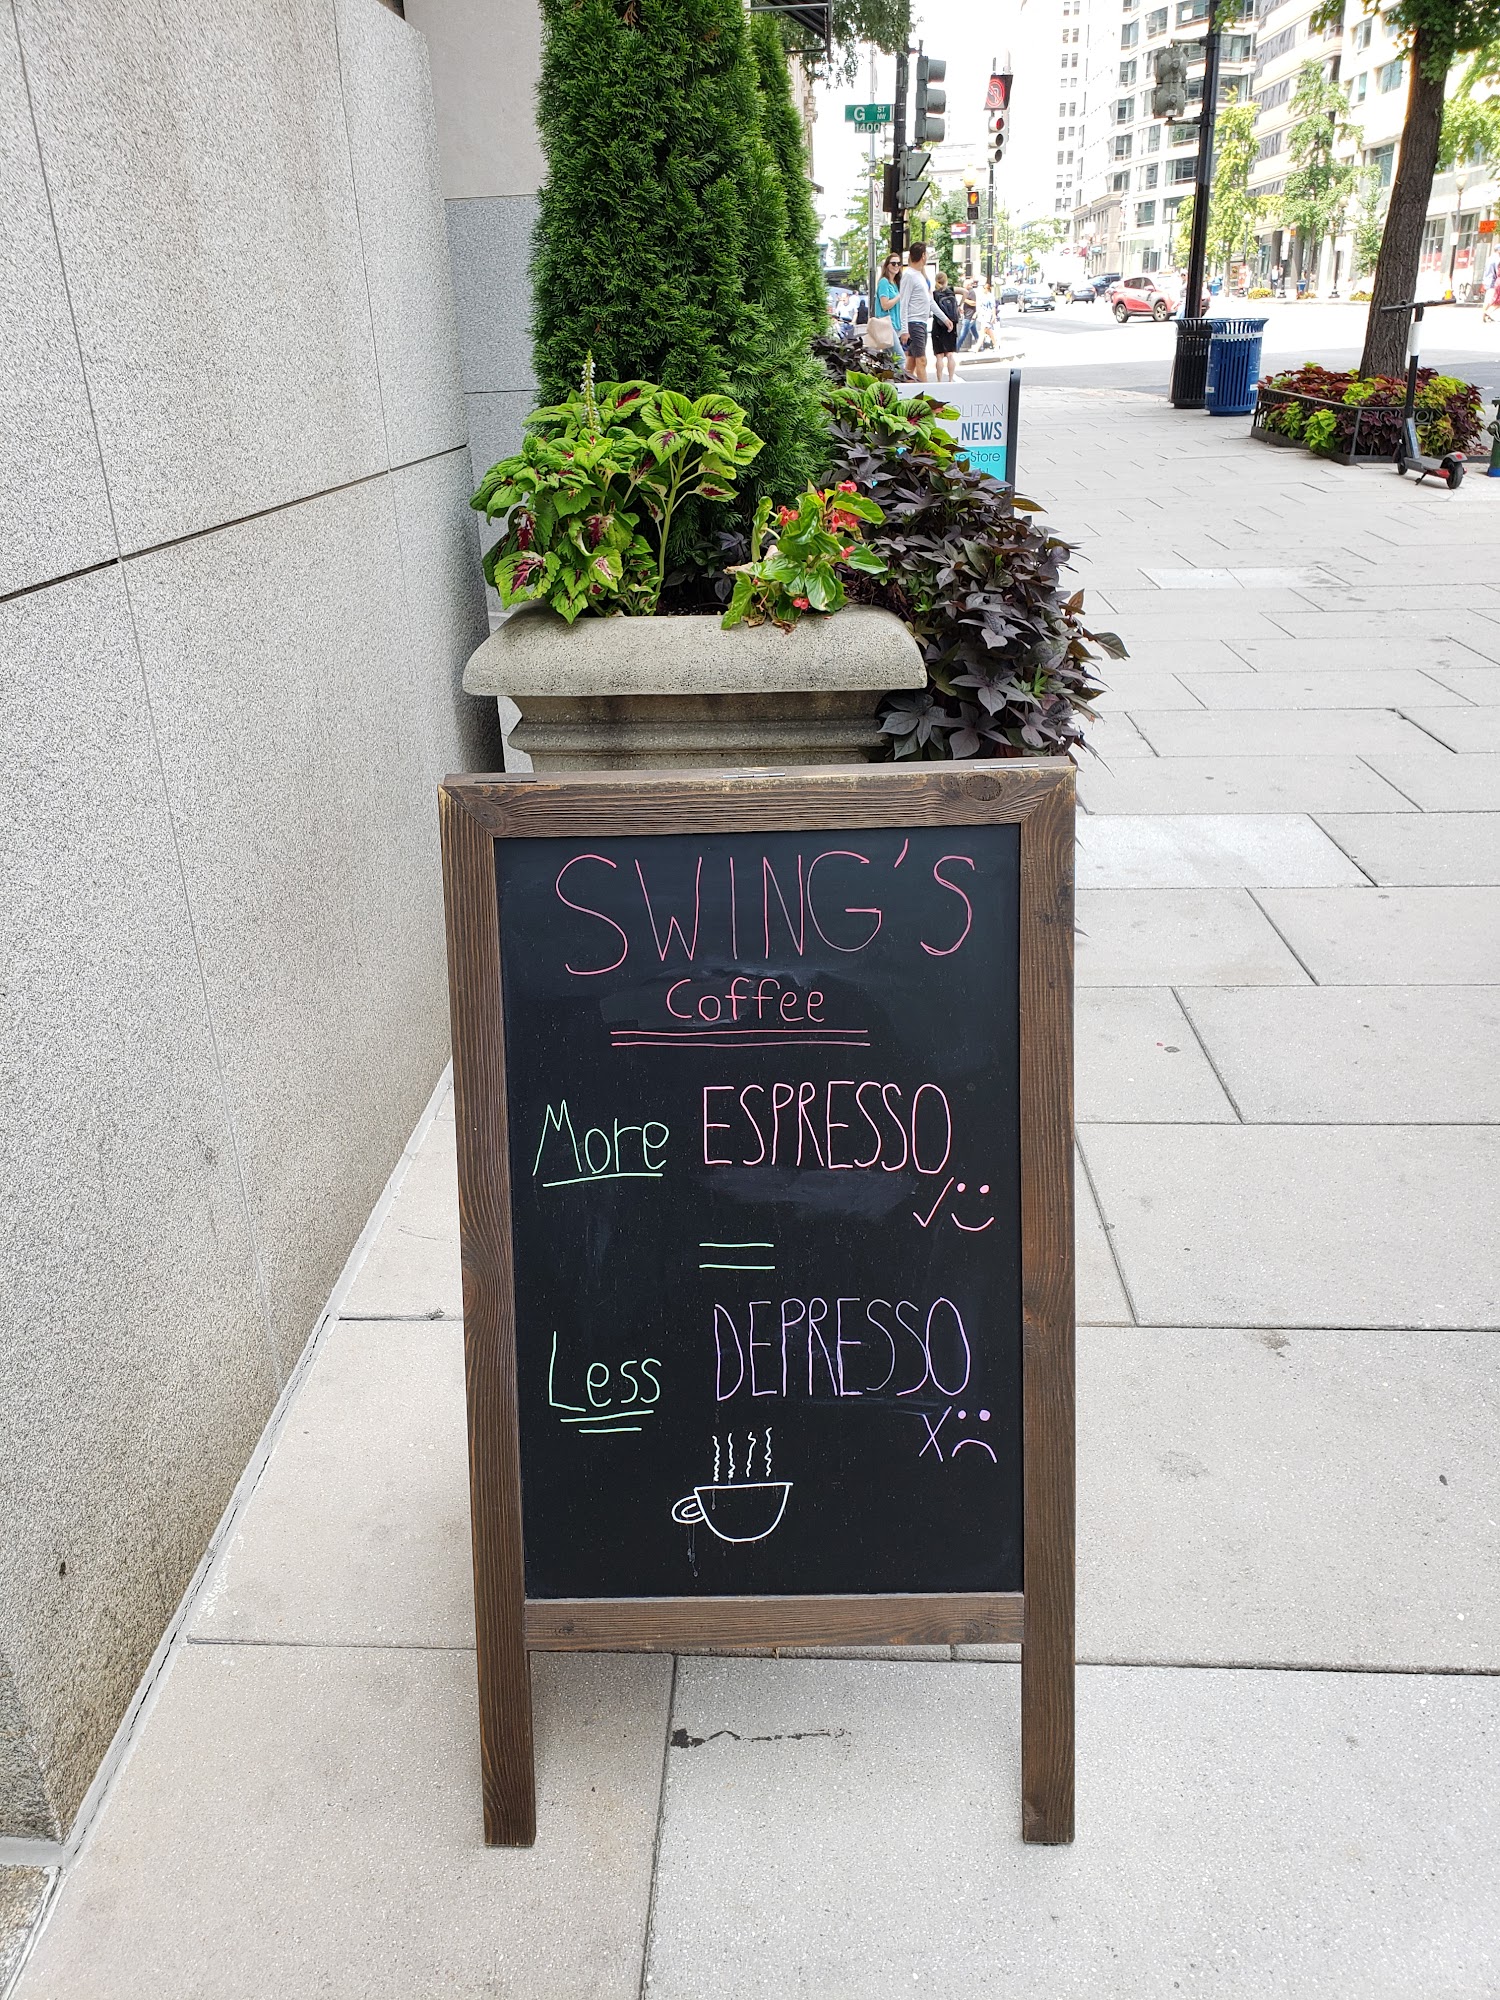 G ST NW
1400
LITAN
NEWS
Store
SWING'S
Coffee
More ESPRESSO
=
Less DEPRESSO